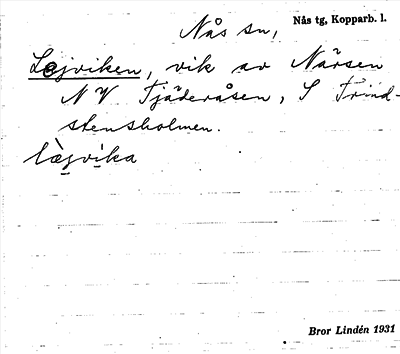 Nås sn, Nås tg, Kopparb. l.
Lejviken, vik av Närsen
NV Tjäderåsen, S Trind-
stensholmen.
Bror Lindén 1931